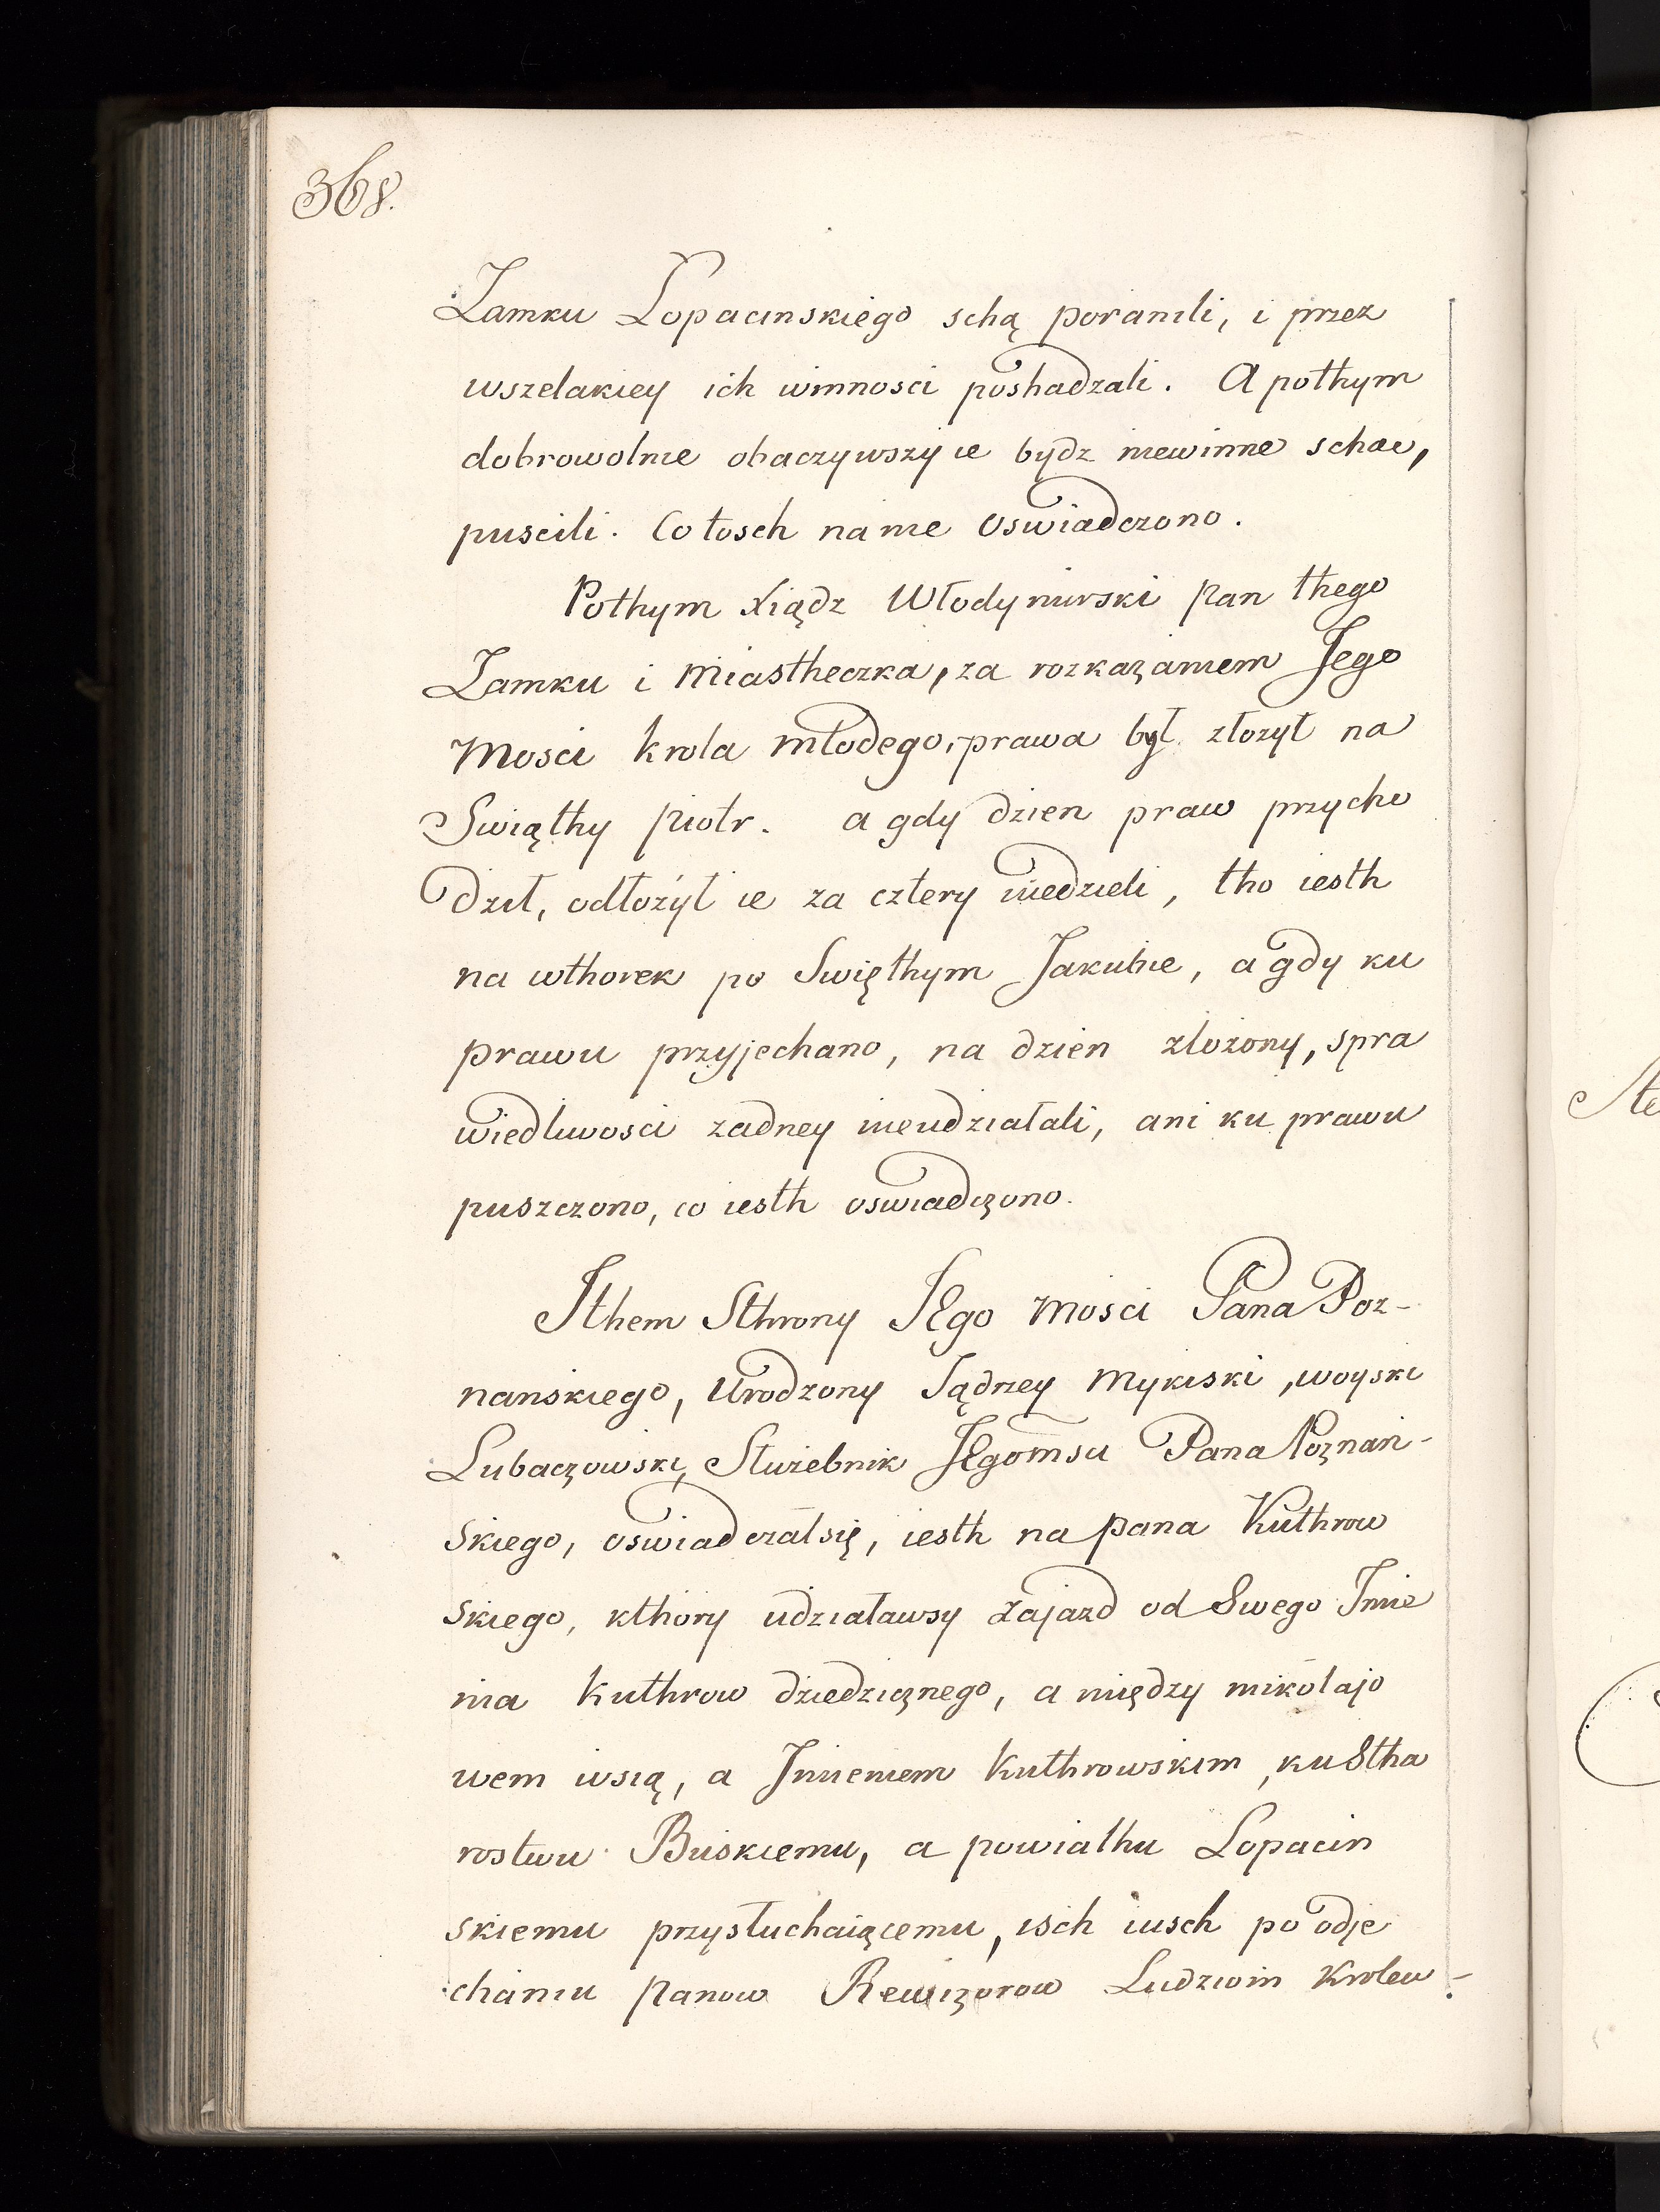 368.
Zamku Lopacinskiego schą poranili, i przez
wszelakiey ich winnosci poshadzali. A pothym
dobrowolnie obaczywszy ie bydz niewinne schae,
puscili. Co tosch na nie oswiadczono.
Pothym Xiądz Włodymirski Pan thego
Zamku i Miastheczka, za rozkazaniem Jego
Mosci krola młodego, prawa był złozył na
Swiąthy Piotr. a gdy dzien praw przycho
dził, odłożył ie za cztery niedzieli, tho iesth
na wthorek po Swięthym Jakubie, a gdy ku
prawu przyjechano, na dzien zlożony, spra
wiedliwosci zadney nieudziałali, ani ku prawu
puszczono, co iesth oswiadczono.
Ithem Sthrony JEgo Mosci Pana Poz-
nanskiego, Urodzony Jądrzey Mykiski, woyski
Lubaczowski, Służebnik JEgomsci Pana Poznan-
skiego, oswiadczał się, iesth na pana Kuthrow
skiego, kthory udziaławsy zajazd od Swego Imie
nia Kuthrow dziedzicznego, a między mikolajo
wem wsią, a Imieniem Kuthrowskim, ku Stha
rostwu Buskiemu, a powiathu Lopacin
skiemu przysłuchaiącemu, isch iusch po odje
chaniu Panow Rewizorow Ludziom Krolew-
Ste